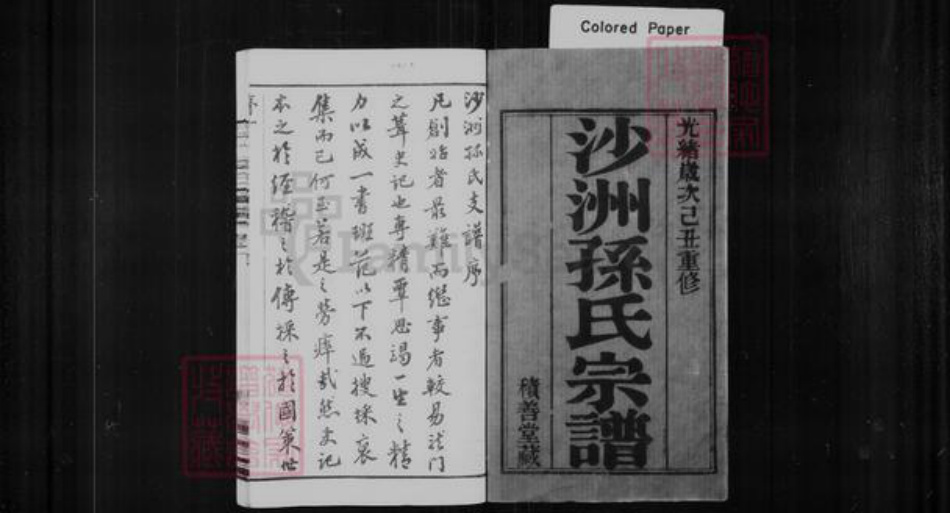 Colored Paper
光緒歲次己丑重修
沙洲孫氏宗譜
積善堂藏
沙洲孫氏支譜序
凡創始者最難而繼事者較易龍門
之葺史記也專精覃思竭一生之精
力以成一書班范以下不過搜採裒
集而已何至若是之勞瘁哉然史記
本之於經稽之於傳採之於國策世